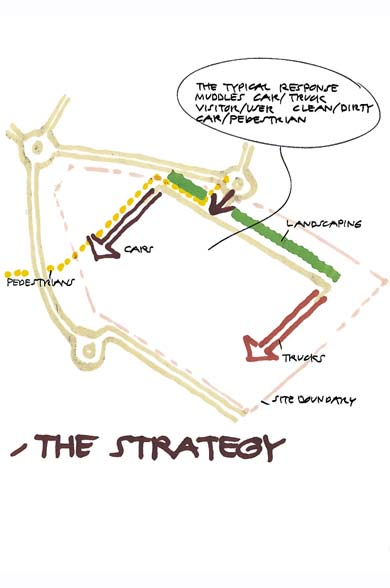 THE TYPICAL RESPONSE
MUDDLES CAR/TRUCK
VISITOR/USER CLEAN/DIRTY
CAR/PEDESTRIAN
LANDSCAPING
CARS
PEDESTRIANS
TRUCKS
SITE BOUNDARY
THE STRATEGY